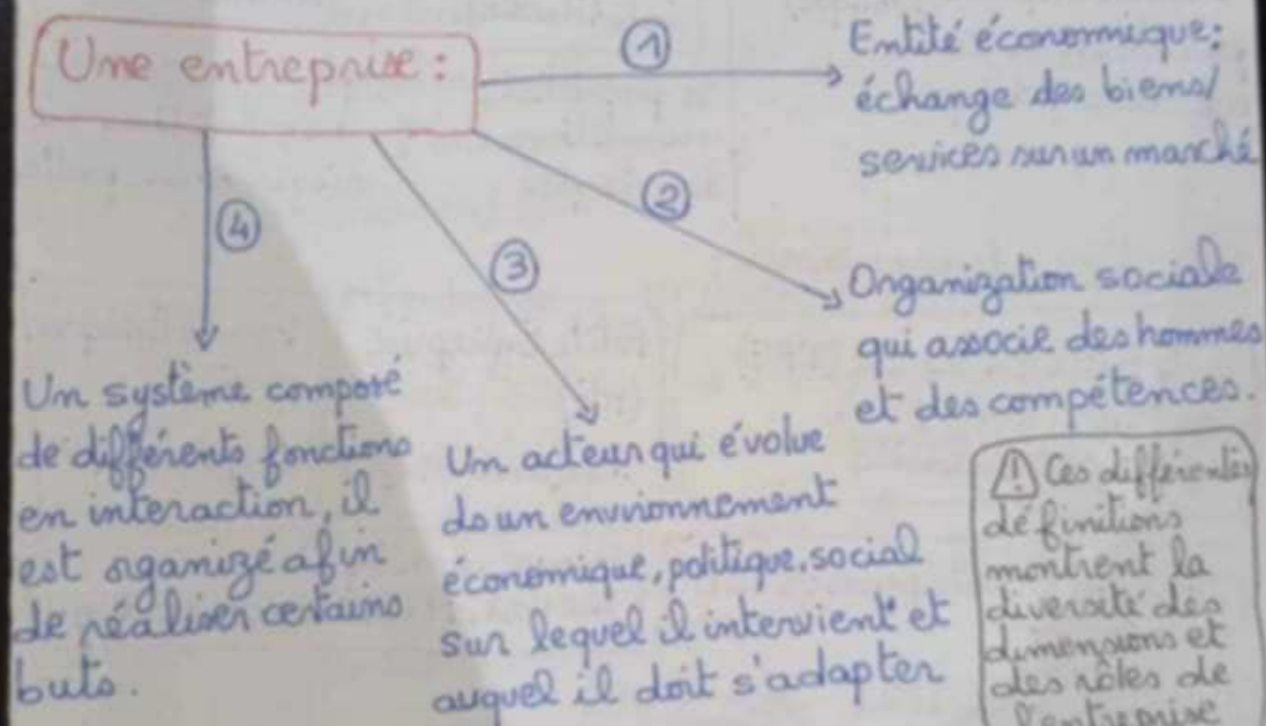 Une entreprise :
①
Entité économique :
échange des biens/
services sur un marché
②
Organization sociale
qui associe des hommes
et des compétences.
③
Un acteur qui évolue
ds un environnement
économique, politique, social
sur lequel il intervient et
auquel il doit s'adapter
④
Un système composé
de différents fonctions
en interaction, il
est organizé afin
de réaliser certains
buts.
⚠ Ces différentes
définitions
montrent la
diversité des
dimensions et
des rôles de
l'entreprise